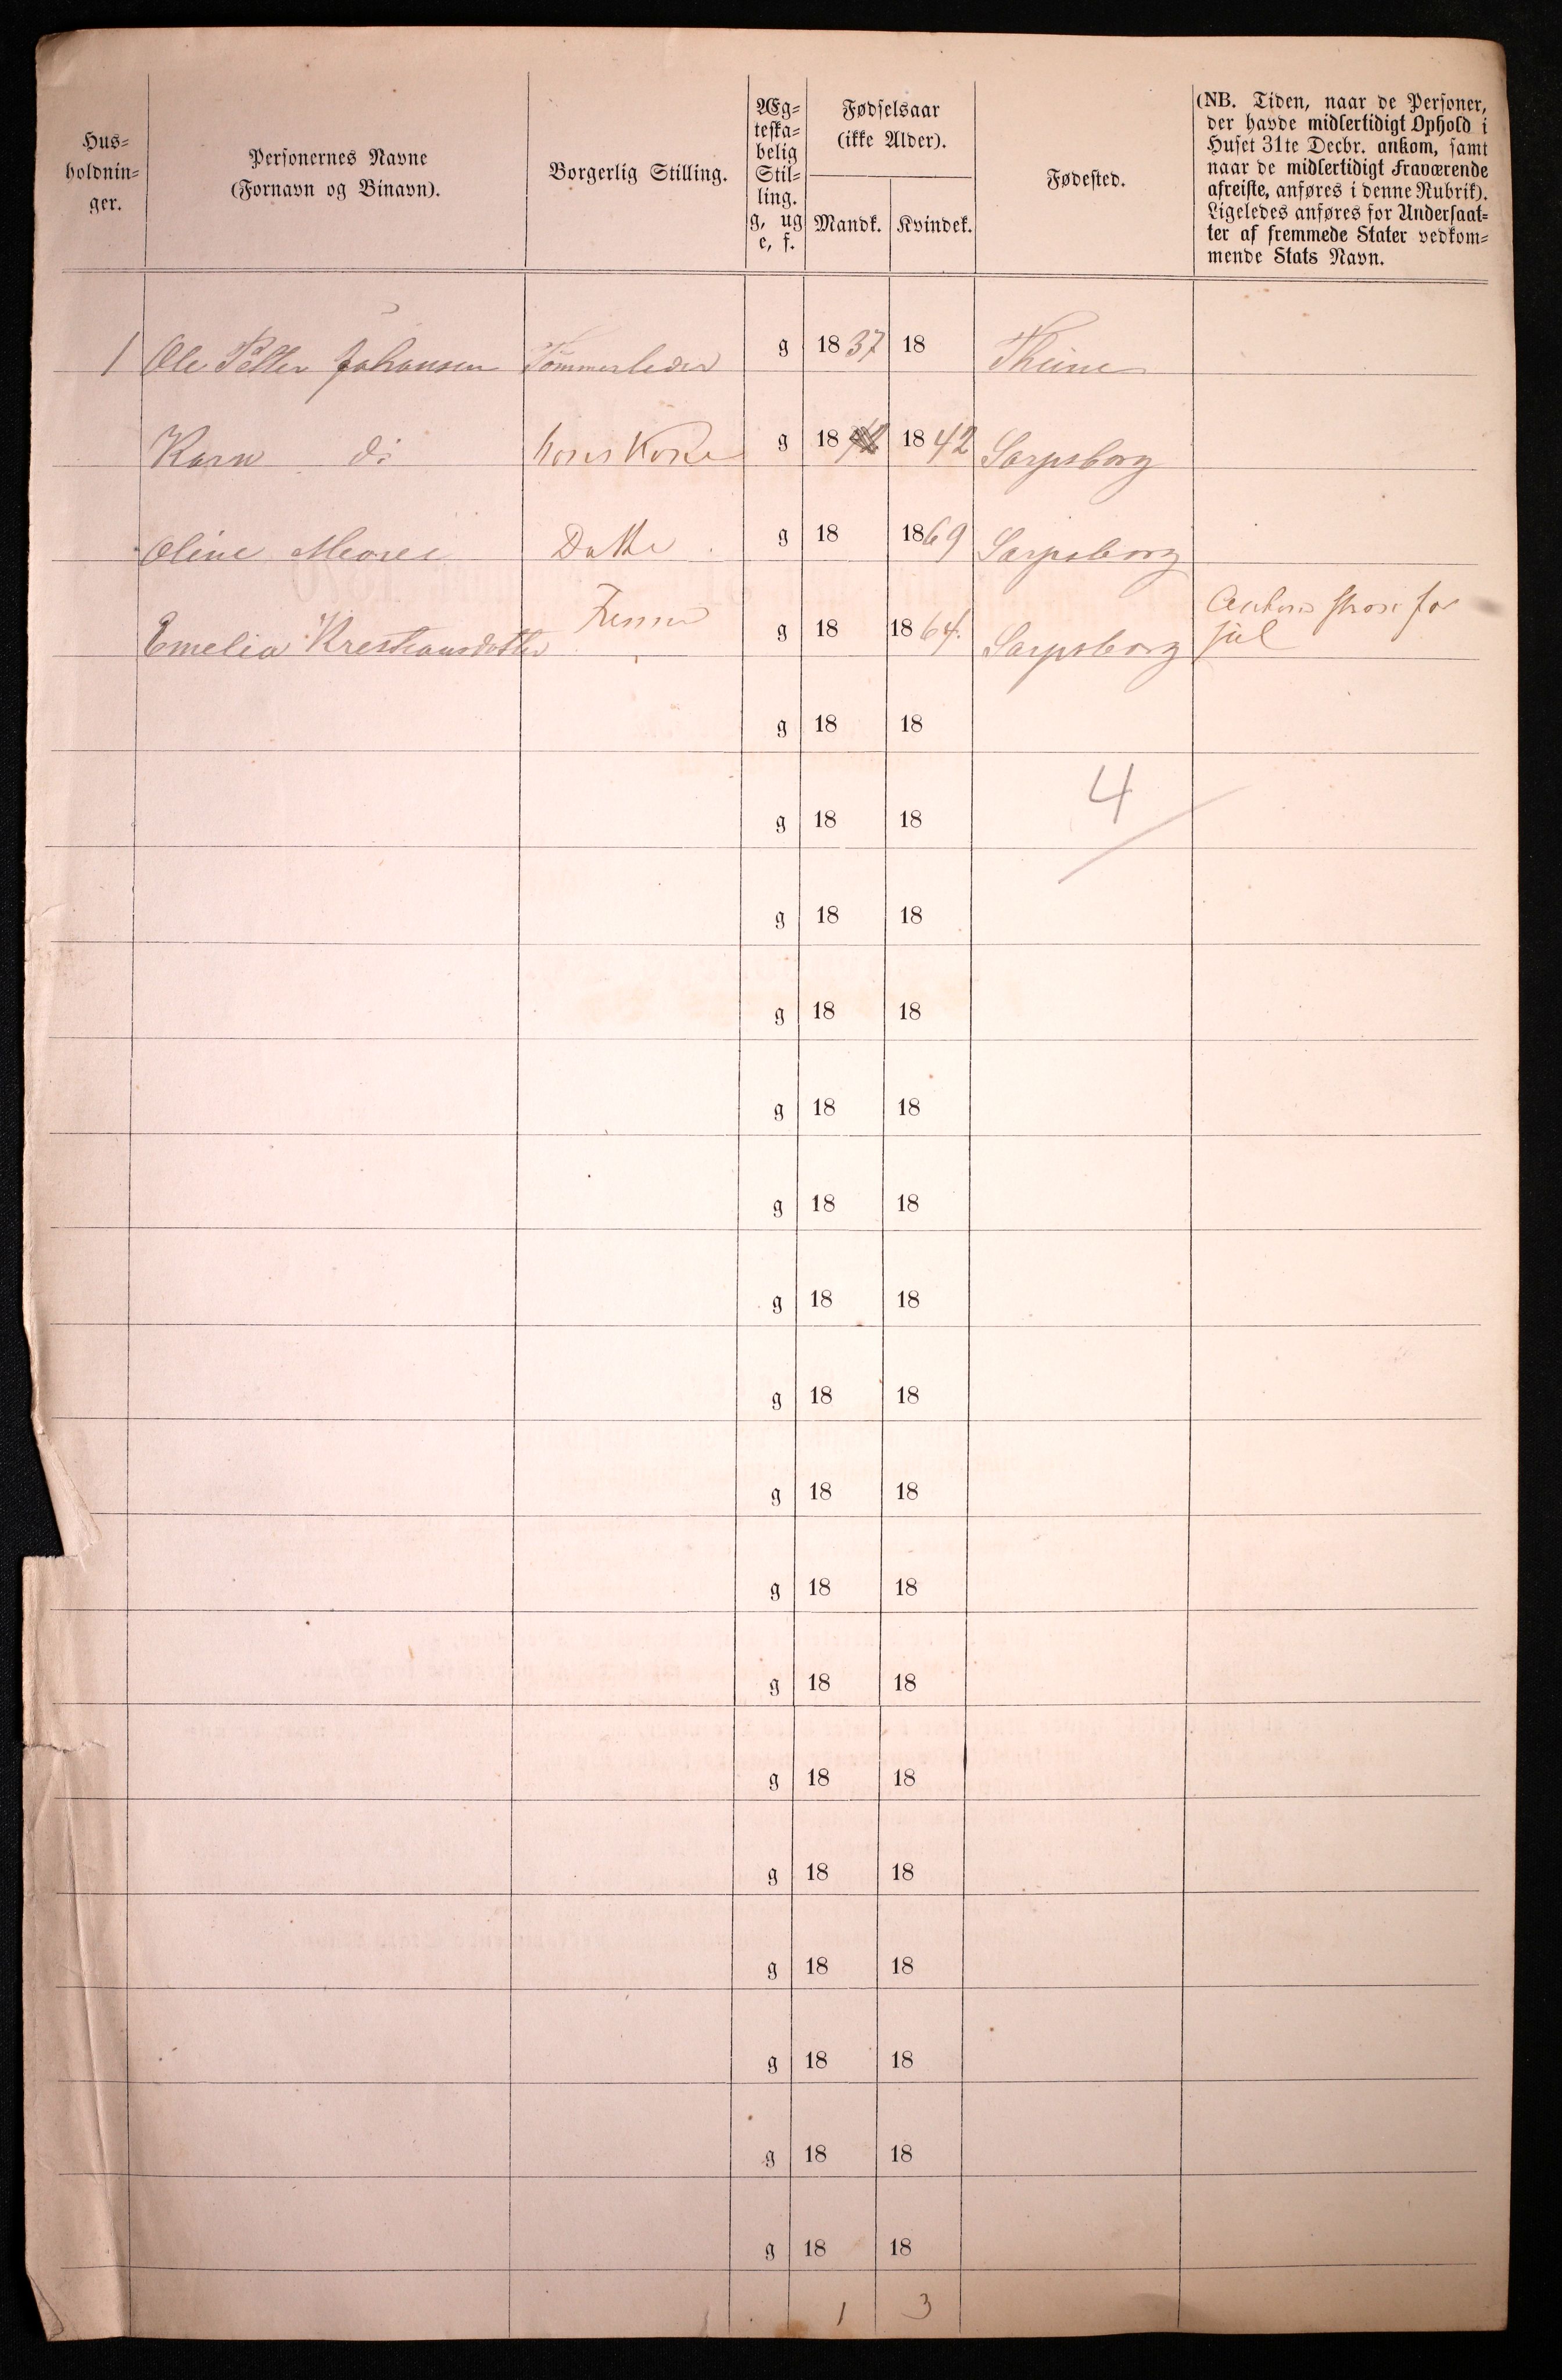 Hus=
holdnin=
ger.
Personernes Navne
(Fornavn og Binavn).
Borgerlig Stilling.
Æg=
teska=
belig
Stil=
ling.
g, ug
e, f.
Fødselsaar
(ikke Alder).
Mandk. Kvindek.
Fødested.
(NB. Tiden, naar de Personer,
der havde midlertidigt Ophold i
Huset 31te Decbr. ankom, samt
naar de midlertidigt Fraværende
afreiste, anføres i denne Rubrik).
Ligeledes anføres for Undersaat=
ter af fremmede Stater vedkom=
mende Stats Navn.
1 Ole Petter Johansen Tømmerleder g 1837 18
Karn do g 18 1842 Sarpsborg
Oline g 18 1869 Sarpsborg
Emelia Krestiansdatter g 18 1864. Sarpsborg
for
jul
g 18 18
4
g 18 18
g 18 18
g 18 18
g 18 18
g 18 18
g 18 18
g 18 18
g 18 18
g 18 18
g 18 18
g 18 18
g 18 18
g 18 18
g 18 18
g 18 18
g 18 18
1 3